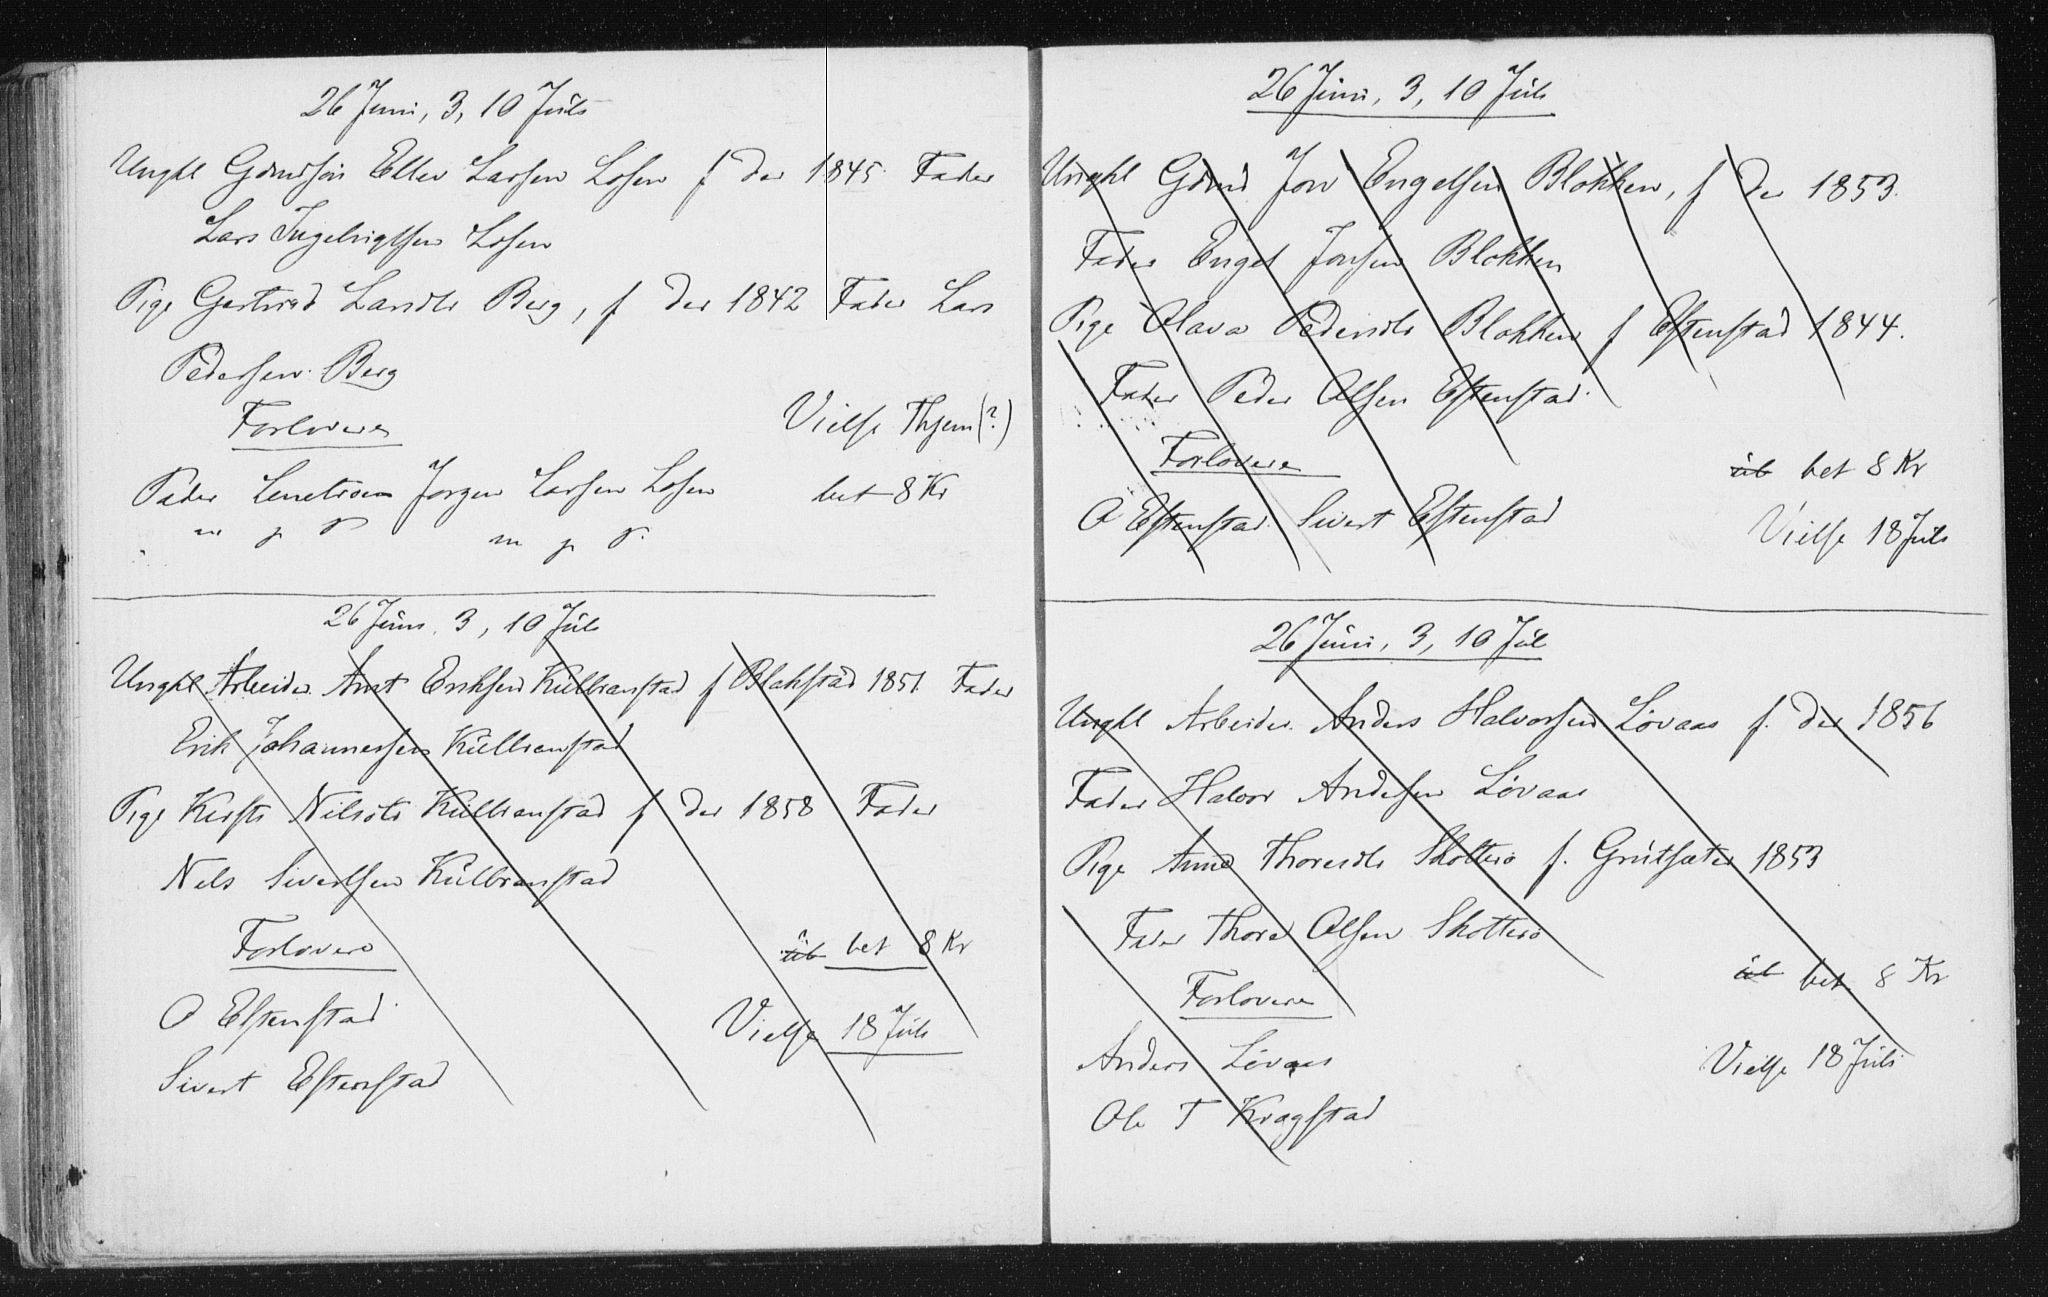 26 Juni, 3, 10 Juli
Ungkl Gdmdsøn Ellev Larsen Losen f der 1845. Fader
Lars Ingebrigtsen Losen
Pige Gertrud Larsdtr Berg, f der 1842 Fader Lars
Pedersen Berg
Forlovere
Vielse Thjem (?)
Peder Jørgen Larsen Losen
bet 8 Kr
m p P m p P.
26 Juni, 3, 10 Juli
Ungkl Arbeider Arnt Eriksen Külbranstad f Blakstad 1851. Fader
Erik Johannessen Külbranstad
Pige Kirsti Nilsdtr Külbranstad f der 1858 Fader
Nils Sivertsen Külbranstad
Forlovere
üb bet 8 Kr
O Estenstad
Vielse 18 Juli
Sivert Estenstad
26 Juni, 3, 10 Juli
Ungkl Gdmd Jon Engelsen Blokken, f der 1853.
Fader Engel Jonsen Blokken
Pige Olava Pedersdtr Blokken f Estenstad 1844.
Fader Peder Olsen Estenstad.
Forlovere
üb bet 8 Kr
O Estenstad Sivert Estenstad
Vielse 18 Juli
26 Juni, 3, 10 Jul
Ungkl Arbeider Anders Halvorsen Løvaas f. der 1856
Fader Halvor Andersen Løvaas
Pige Anne Thoresdtr Skotterø f. Grütsæter 1853
Fader Thore Olsen Skotterø
Forlovere
üb bet 8 Kr
Anders Løvaas
Vielse 18 Juli
Ole T Kragstad